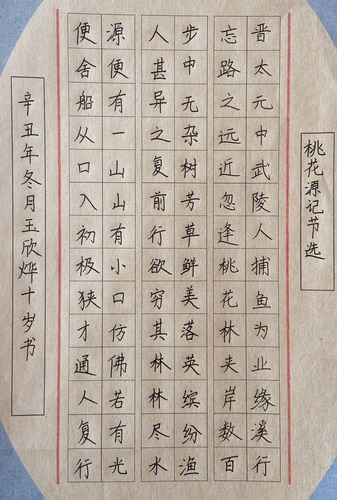 桃花源记节选
晋太元中武陵人捕鱼为业缘溪行
忘路之远近忽逢桃花林夹岸数百
步中无杂树芳草鲜美落英缤纷渔
人甚异之复前行欲穷其林林尽水
源便有一山山有小口仿佛若有光
便舍船从口入初极狭才通人复行
辛丑年冬月玉欣烨十岁书